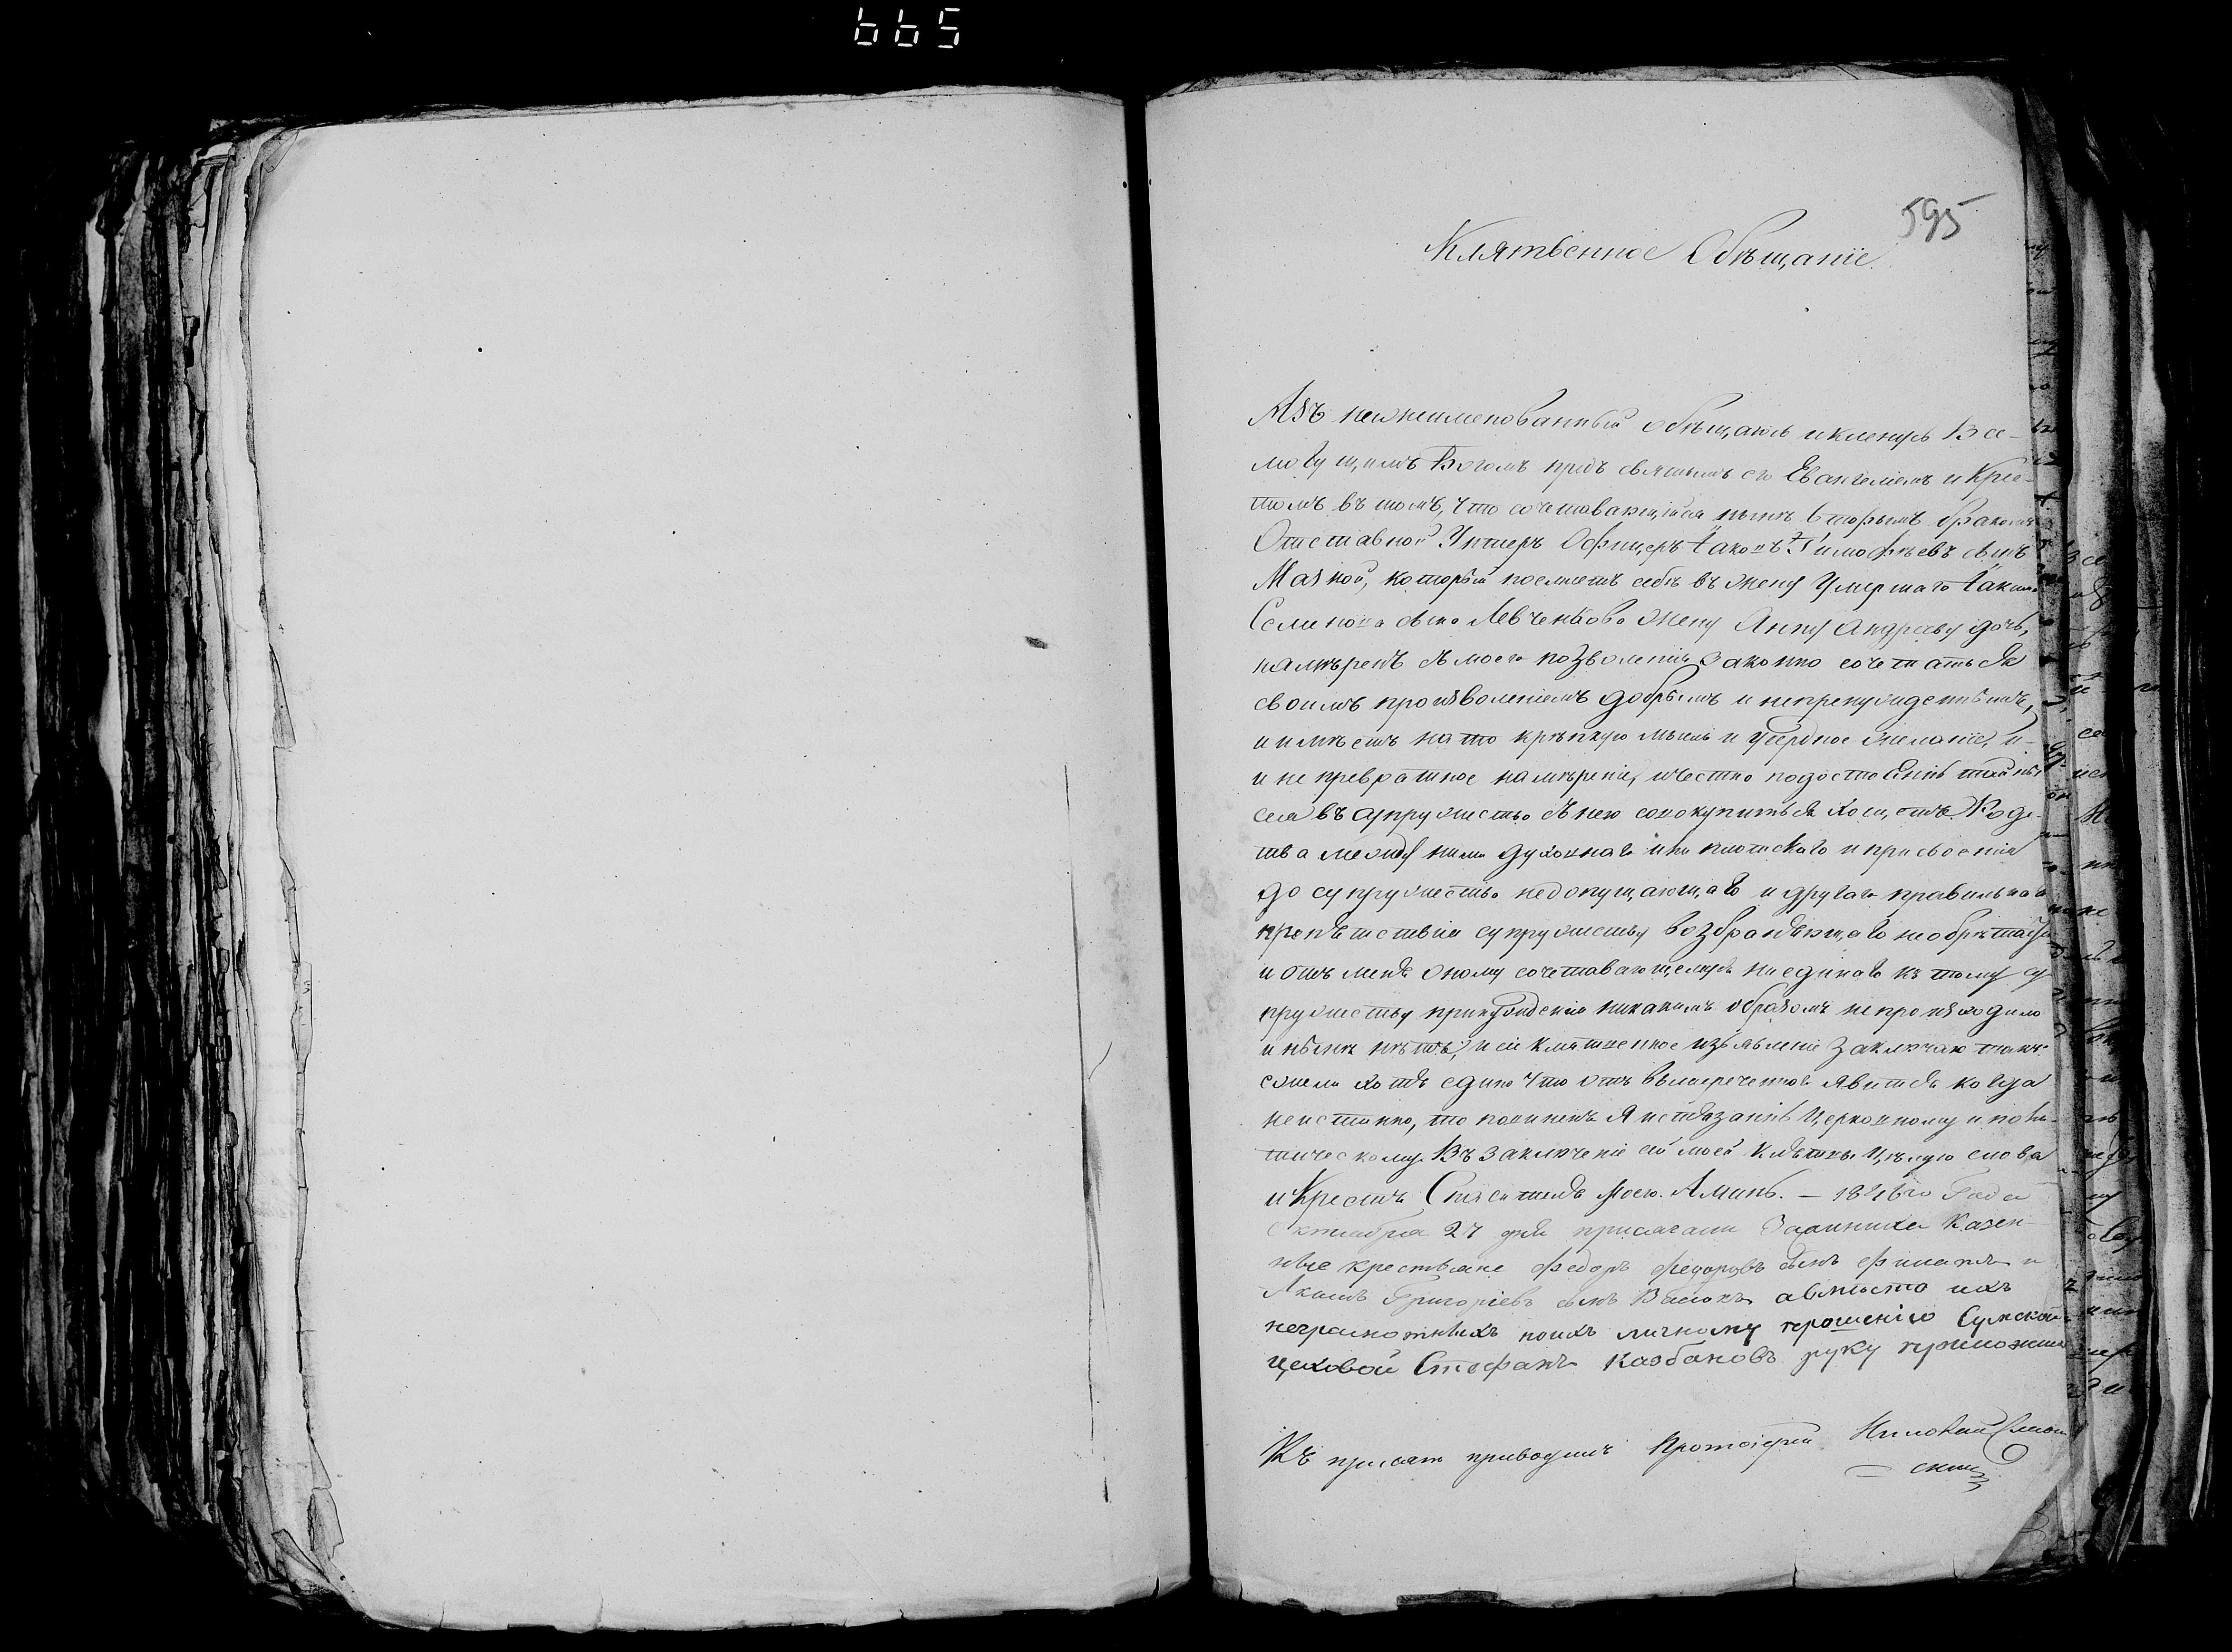 665
595
Клятвенное Обѣщаніе.
Азъ нижеименованный обѣщаюсь и кленусь Все-
могущимъ Богомъ предъ святымъ его Евангеліемъ и Крес-
томъ въ томъ, что сочетавающійся нынѣ вторымъ бракомъ
Отставной Унтеръ Офицеръ Іаковъ Тимофѣевъ сынъ
Мазной, который поемлетъ себѣ въ жену Умершаго
сына Левченкова жену Анну Андрееву дочь,
намѣренъ съ моего позволенія законно сочетаться
своимъ произволеніемъ добрымъ и непренужденнымъ,
и имѣетъ на то крѣпкую мысль и усердное желаніе, и-
и не превратное намѣреніе, и честно подостоянію тайны
сея въ супружество съ нею совокупиться хощетъ. Родс-
тва между ними духовнаго ни плотскаго и присвоенія
до супружества недопущающаго и другаго правильнаго
препятствія супружеству возбраняющаго необрѣтается
и отъ меня оному сочетавающемуся ни единаго къ тому су
пружеству принужденія никакимъ образомъ не произходило
и нынѣ нѣтъ, и сіе клятвенное изъявленіе заключаю такъ:
ежели хотя едино что отъ вышереченнаго явится когда
неистинно, то повиненъ я истязанію Церковному и поли-
тическому. Въ заключеніе сей моей клятвы цѣлую слова
и Крестъ Спасителя Моего. Аминь. — 1846го Года
Октября 27 дня присягали Казен-
ные крестьяне Федоръ Федоровъ сынъ и
Якимъ Григоріевъ сынъ авмѣсто ихъ
неграмотныхъ поихъ личному прошенію Сумской
цеховой Стефанъ Казбановъ руку приложилъ
Къ присягѣ приводилъ Протоіерей